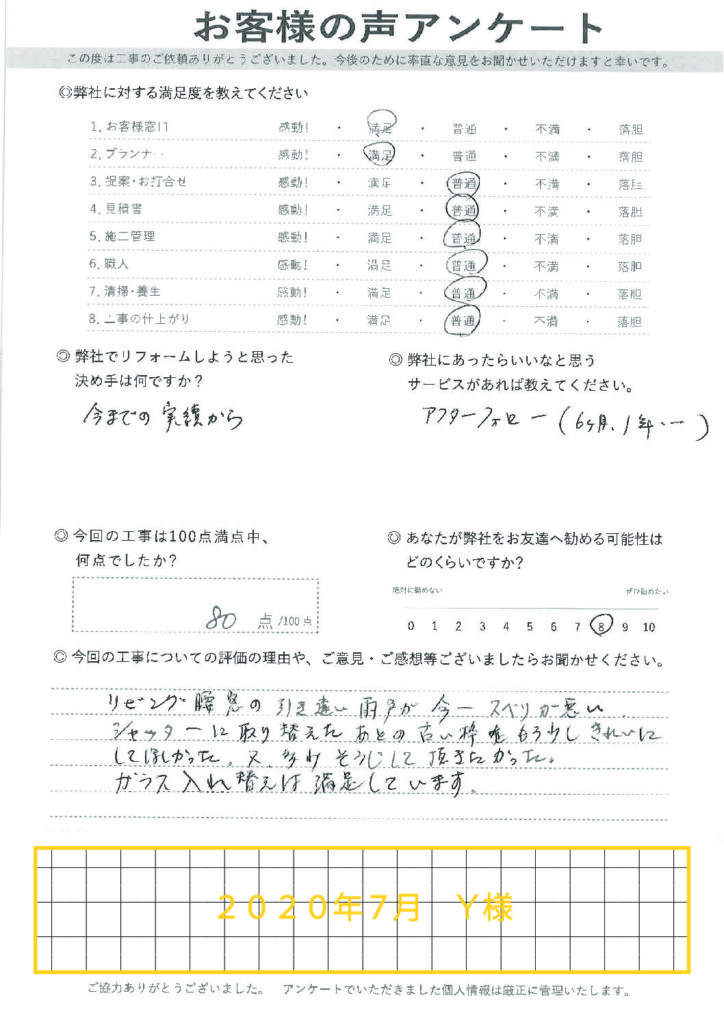 お客様の声アンケート
この度は工事のご依頼ありがとうございました。今後のために率直な意見をお聞かせいただけますと幸いです。
◎弊社に対する満足度を教えてください
1. お客様窓口 感動! ・ 満足 ・ 普通 ・ 不満 ・ 落胆
2. プランナー 感動! ・ 満足 ・ 普通 ・ 不満 ・ 落胆
3. 提案・お打合せ 感動! ・ 満足 ・ 普通 ・ 不満 ・ 落胆
4. 見積書 感動! ・ 満足 ・ 普通 ・ 不満 ・ 落胆
5. 施工管理 感動! ・ 満足 ・ 普通 ・ 不満 ・ 落胆
6. 職人 感動! ・ 満足 ・ 普通 ・ 不満 ・ 落胆
7. 清掃・養生 感動! ・ 満足 ・ 普通 ・ 不満 ・ 落胆
8. 工事の仕上がり 感動! ・ 満足 ・ 普通 ・ 不満 ・ 落胆
◎ 弊社でリフォームしようと思った
決め手は何ですか?
今までの実績から
◎ 弊社にあったらいいなと思う
サービスがあれば教えてください。
アフターフォロー(6ヶ月、1年・・・)
◎ 今回の工事は100点満点中、
何点でしたか?
80 点 /100点
◎ あなたが弊社をお友達へ勧める可能性は
どのくらいですか?
絶対に勧めない ぜひ勧めたい
0 1 2 3 4 5 6 7 8 9 10
◎ 今回の工事についての評価の理由や、ご意見・ご感想等ございましたらお聞かせください。
リビング腰窓の引き違い雨戸が今一スベリが悪い。
シャッターに取り替えたあとの古い枠をもう少しきれいに
してほしかった。又、多少そうじして頂きたかった。
ガラス入れ替えは満足しています。
2020年7月 Y様
ご協力ありがとうございました。 アンケートでいただきました個人情報は厳正に管理いたします。